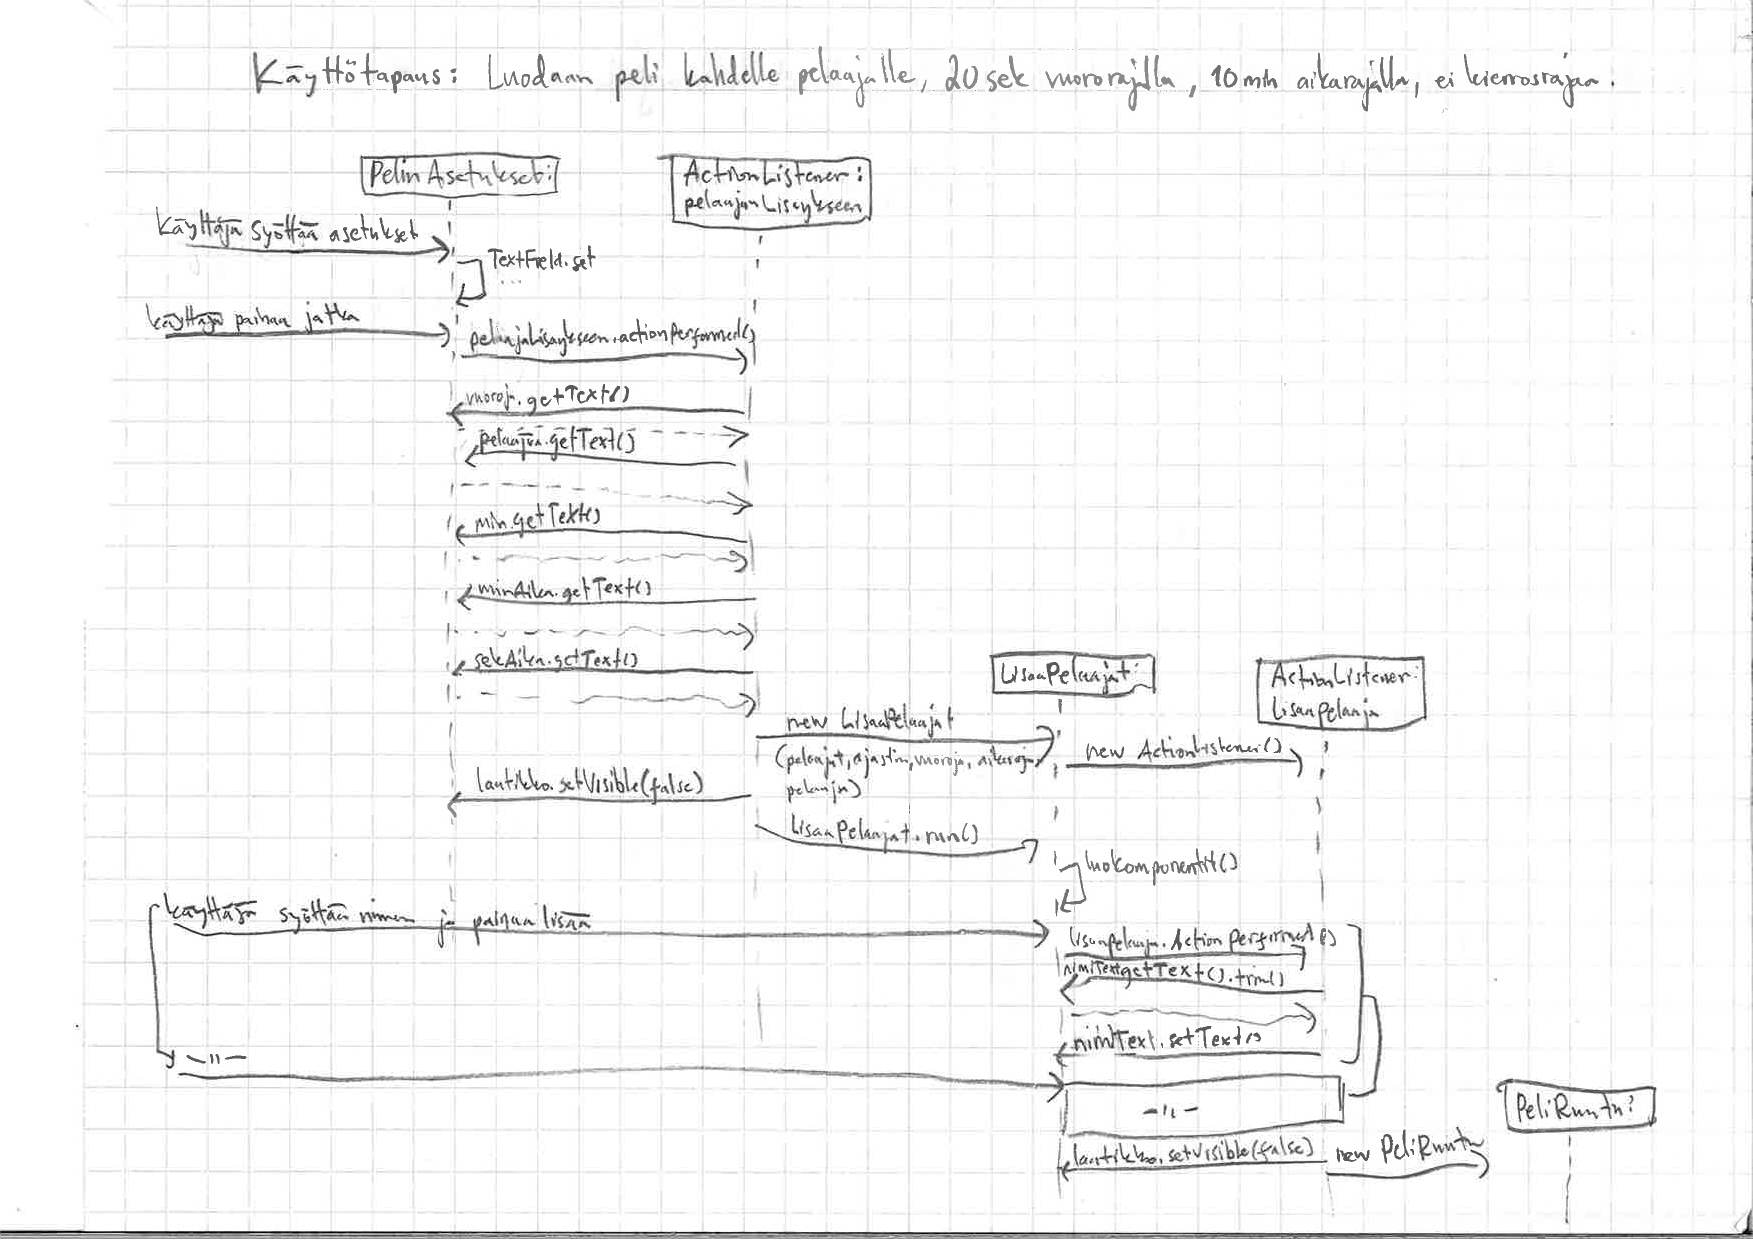 Käyttötapaus: Luodaan peli kahdelle pelaajalle, 20 sek vuororajalla, 10 min aikarajalla, ei kierrosrajaa.
PelinAsetukset:
ActionListener:
pelaajanLisaykseen
Käyttäjä syöttää asetukset
TextField.set
...
käyttäjä painaa jatka
pelaajaLisaykseen.actionPerformed()
vuoroja.getText()
pelaajia.getText()
min.getText()
minAika.getText()
sekAika.getText()
LisaaPelaajat:
ActionListener:
LisaaPelaaja
new LisaaPelaajat
(pelaajat, ajastin, vuoroja, aikaraja,
pelaaja)
new ActionListener()
laatikko.setVisible(false)
LisaaPelaajat.run()
luoKomponentit()
käyttäjä syöttää nimen ja painaa lisää
lisaaPelaaja.ActionPerformed()
nimiText.getText().trim()
nimiText.setText()
-11-
-11-
PeliRuutu:
laatikko.setVisible(false)
new PeliRuutu